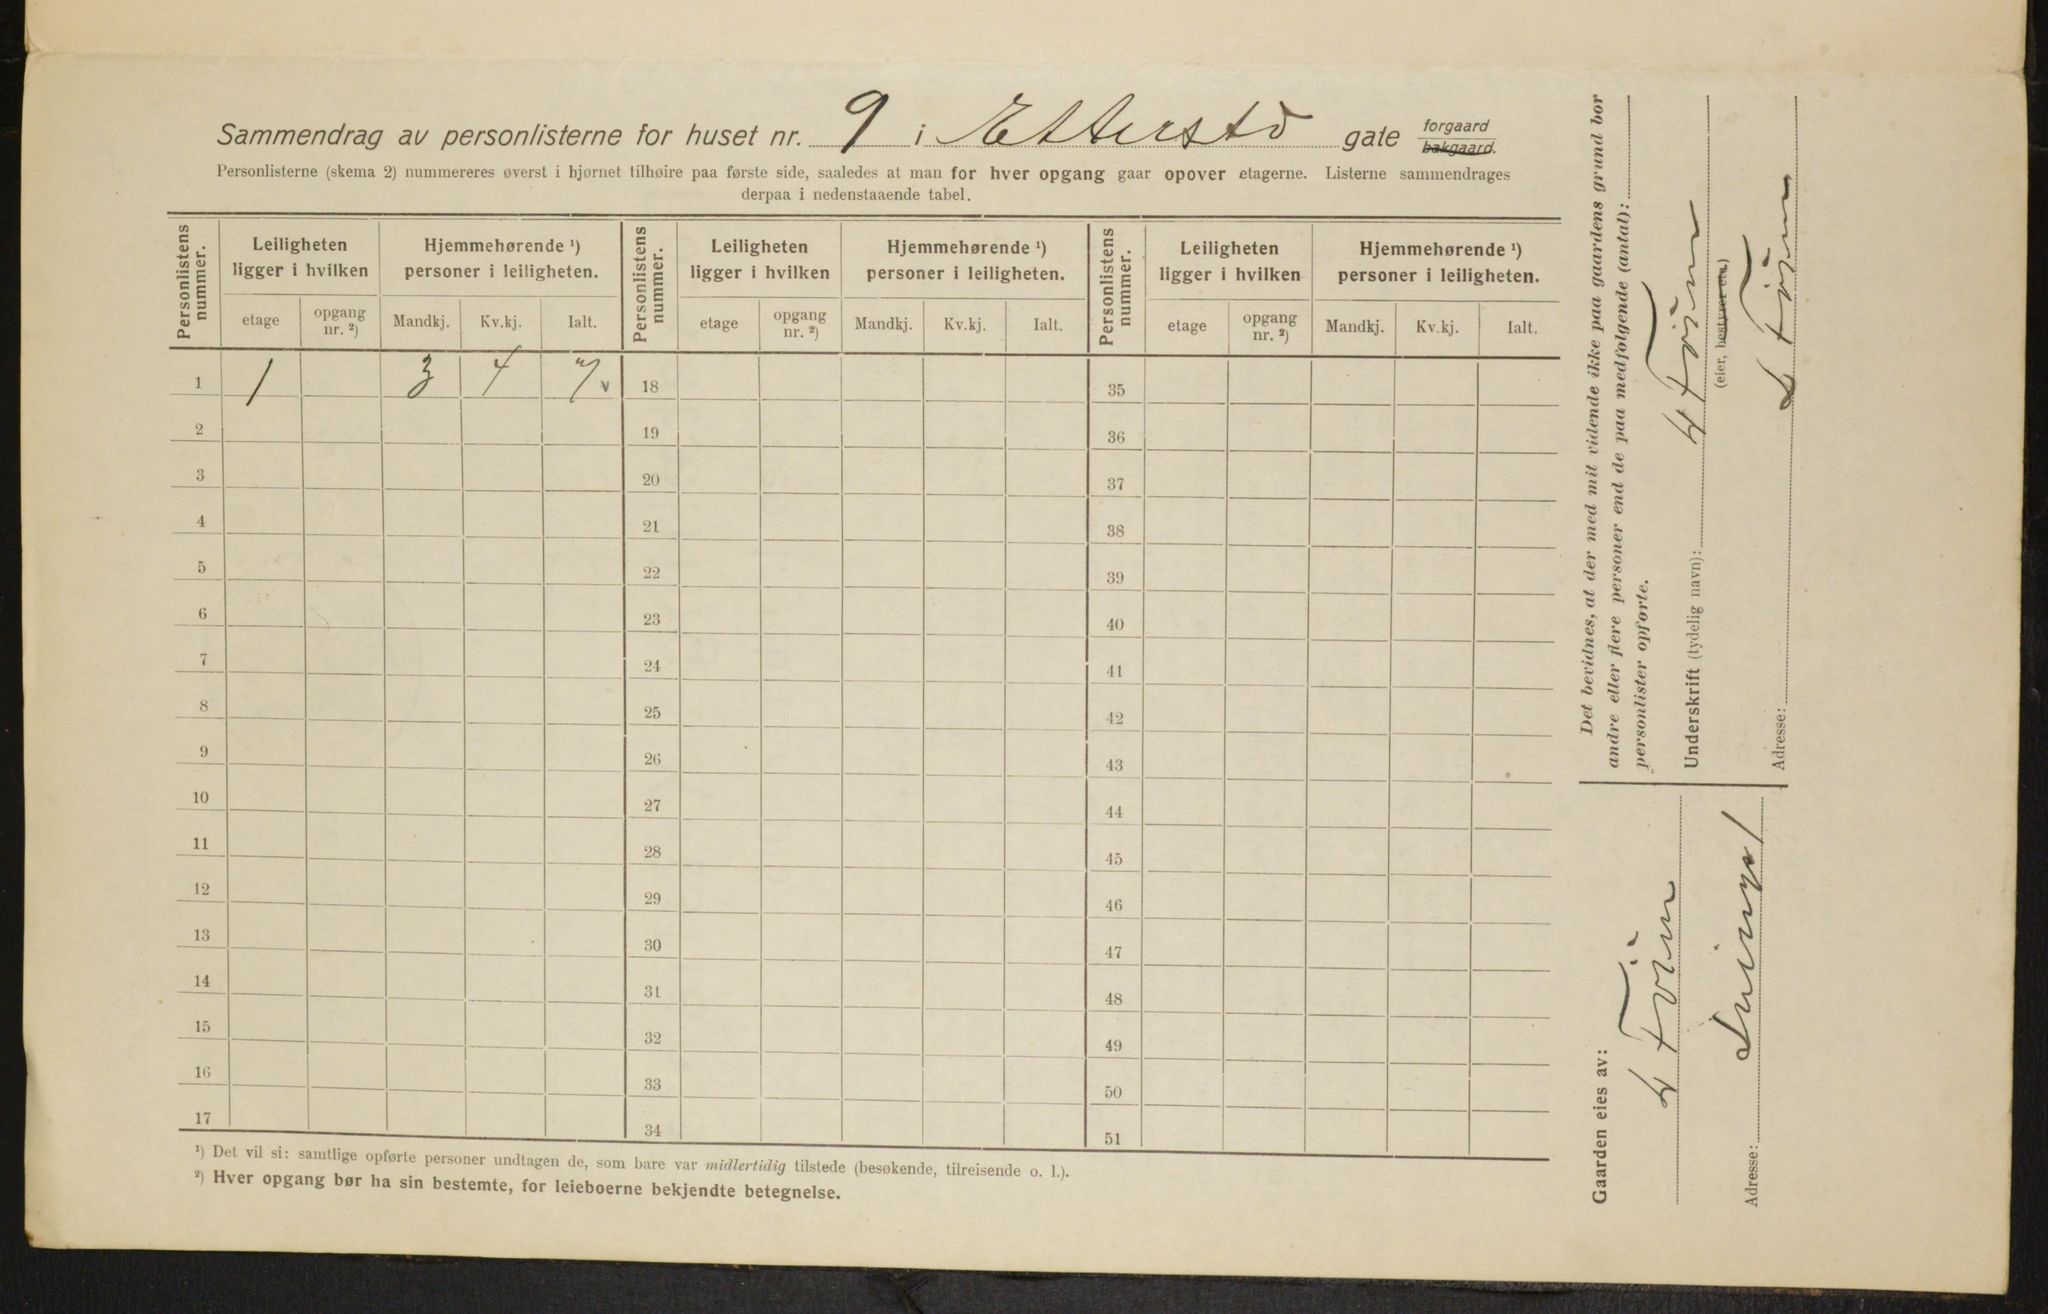 Sammendrag av personlisterne for huset nr. 9 i Ettersto gate forgaard bakgaard.
Personlisterne (skema 2) nummereres øverst i hjørnet tilhøire paa første side, saaledes at man for hver opgang gaar opover etagerne. Listerne sammendrages
derpaa i nedenstaaende tabel.
Personlistens nummer. Leiligheten ligger i hvilken Hjemmehørende ¹) personer i leiligheten. Personlistens nummer. Leiligheten ligger i hvilken Hjemmehørende ¹) personer i leiligheten. Personlistens nummer. Leiligheten ligger i hvilken Hjemmehørende ¹) personer i leiligheten.
etage opgang nr. ²) Mandkj. Kv.kj. Ialt. etage opgang nr. ²) Mandkj. Kv.kj. Ialt. etage opgang nr. ²) Mandkj. Kv.kj. Ialt.
1 1 3 4 7 v 18 35
2 19 36
3 20 37
4 21 38
5 22 39
6 23 40
7 24 41
8 25 42
9 26 43
10 27 44
11 28 45
12 29 46
13 30 47
14 31 48
15 32 49
16 33 50
17 34 51
¹) Det vil si: samtlige opførte personer undtagen de, som bare var midlertidig tilstede (besøkende, tilreisende o. l.).
²) Hver opgang bør ha sin bestemte, for leieboerne bekjendte betegnelse.
Det bevidnes, at der med mit vidende ikke paa gaardens grund bor
andre eller flere personer end de paa medfølgende (antal):
personlister opførte.
Underskrift (tydelig navn):
(eier, bestyrer etc)
Adresse:
Gaarden eies av:
Adresse: